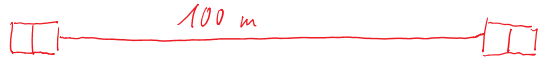 100 m